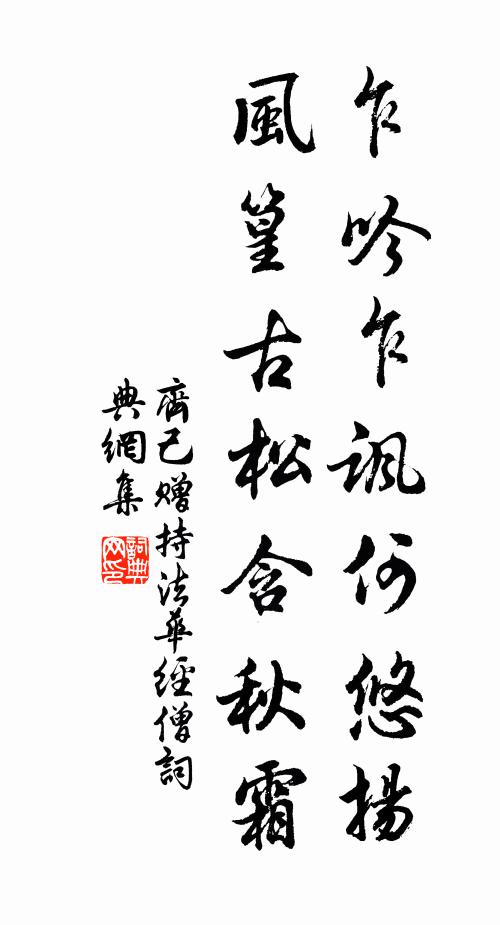 乍吟乍諷何悠揚
風篁古松含秋霜
齊己贈持法華經僧詞
典網集
詞典
网印